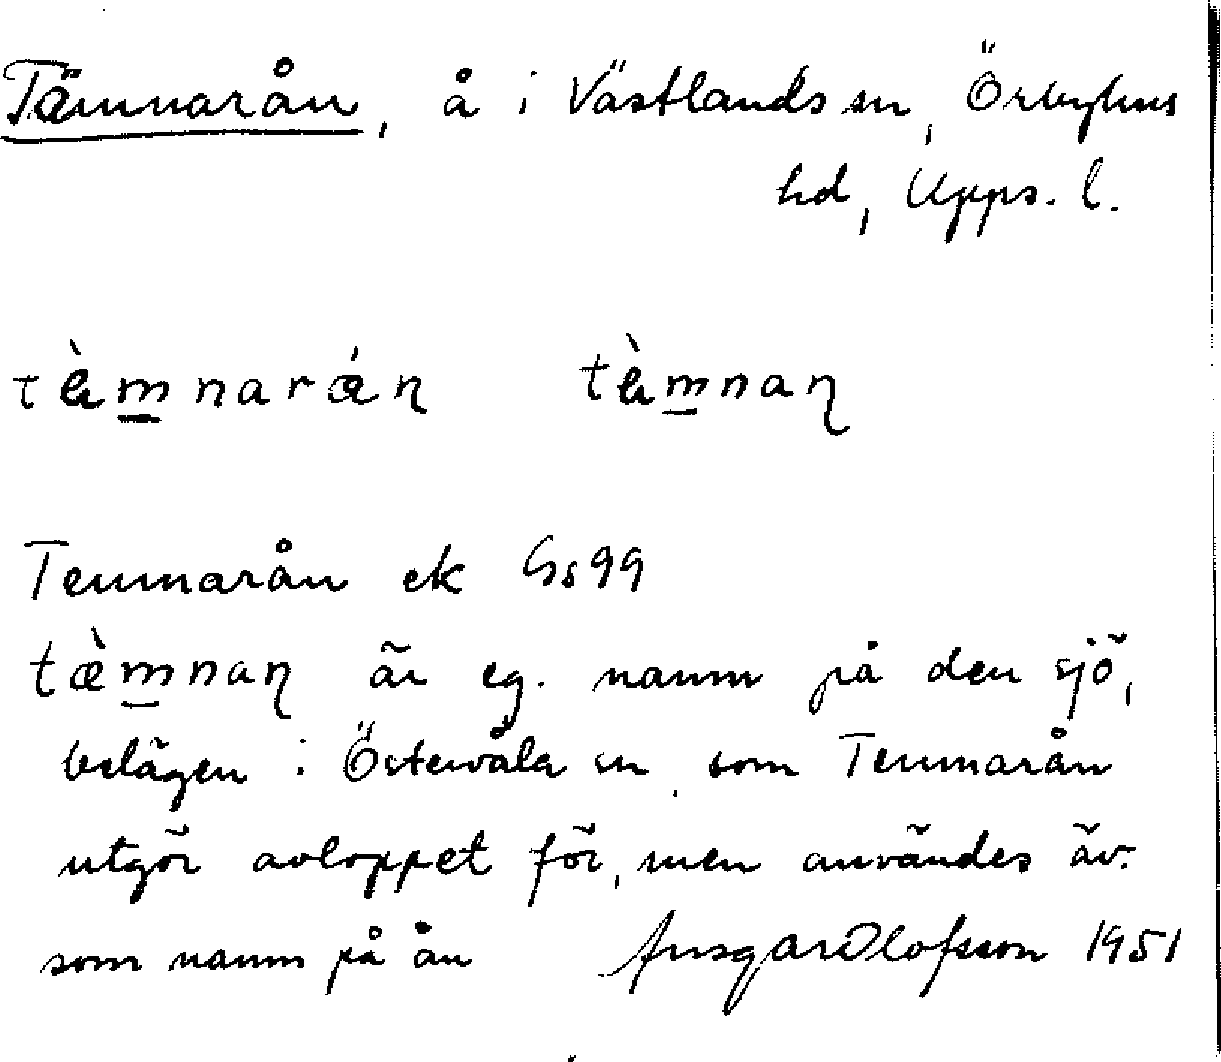 Tämnarån, å i Västlands sn, Örbyhus
hd, Upps. l.
tæ̀m̲narǻn tæ̀m̲nan
Temnarån ek Gs 99
tæ̀m̲nan är eg. namn på den sjö,
belägen i Östervåla sn, som Temnarån
utgör avloppet för, men användes äv.
som namn på ån Ansgar Olofsson 1951